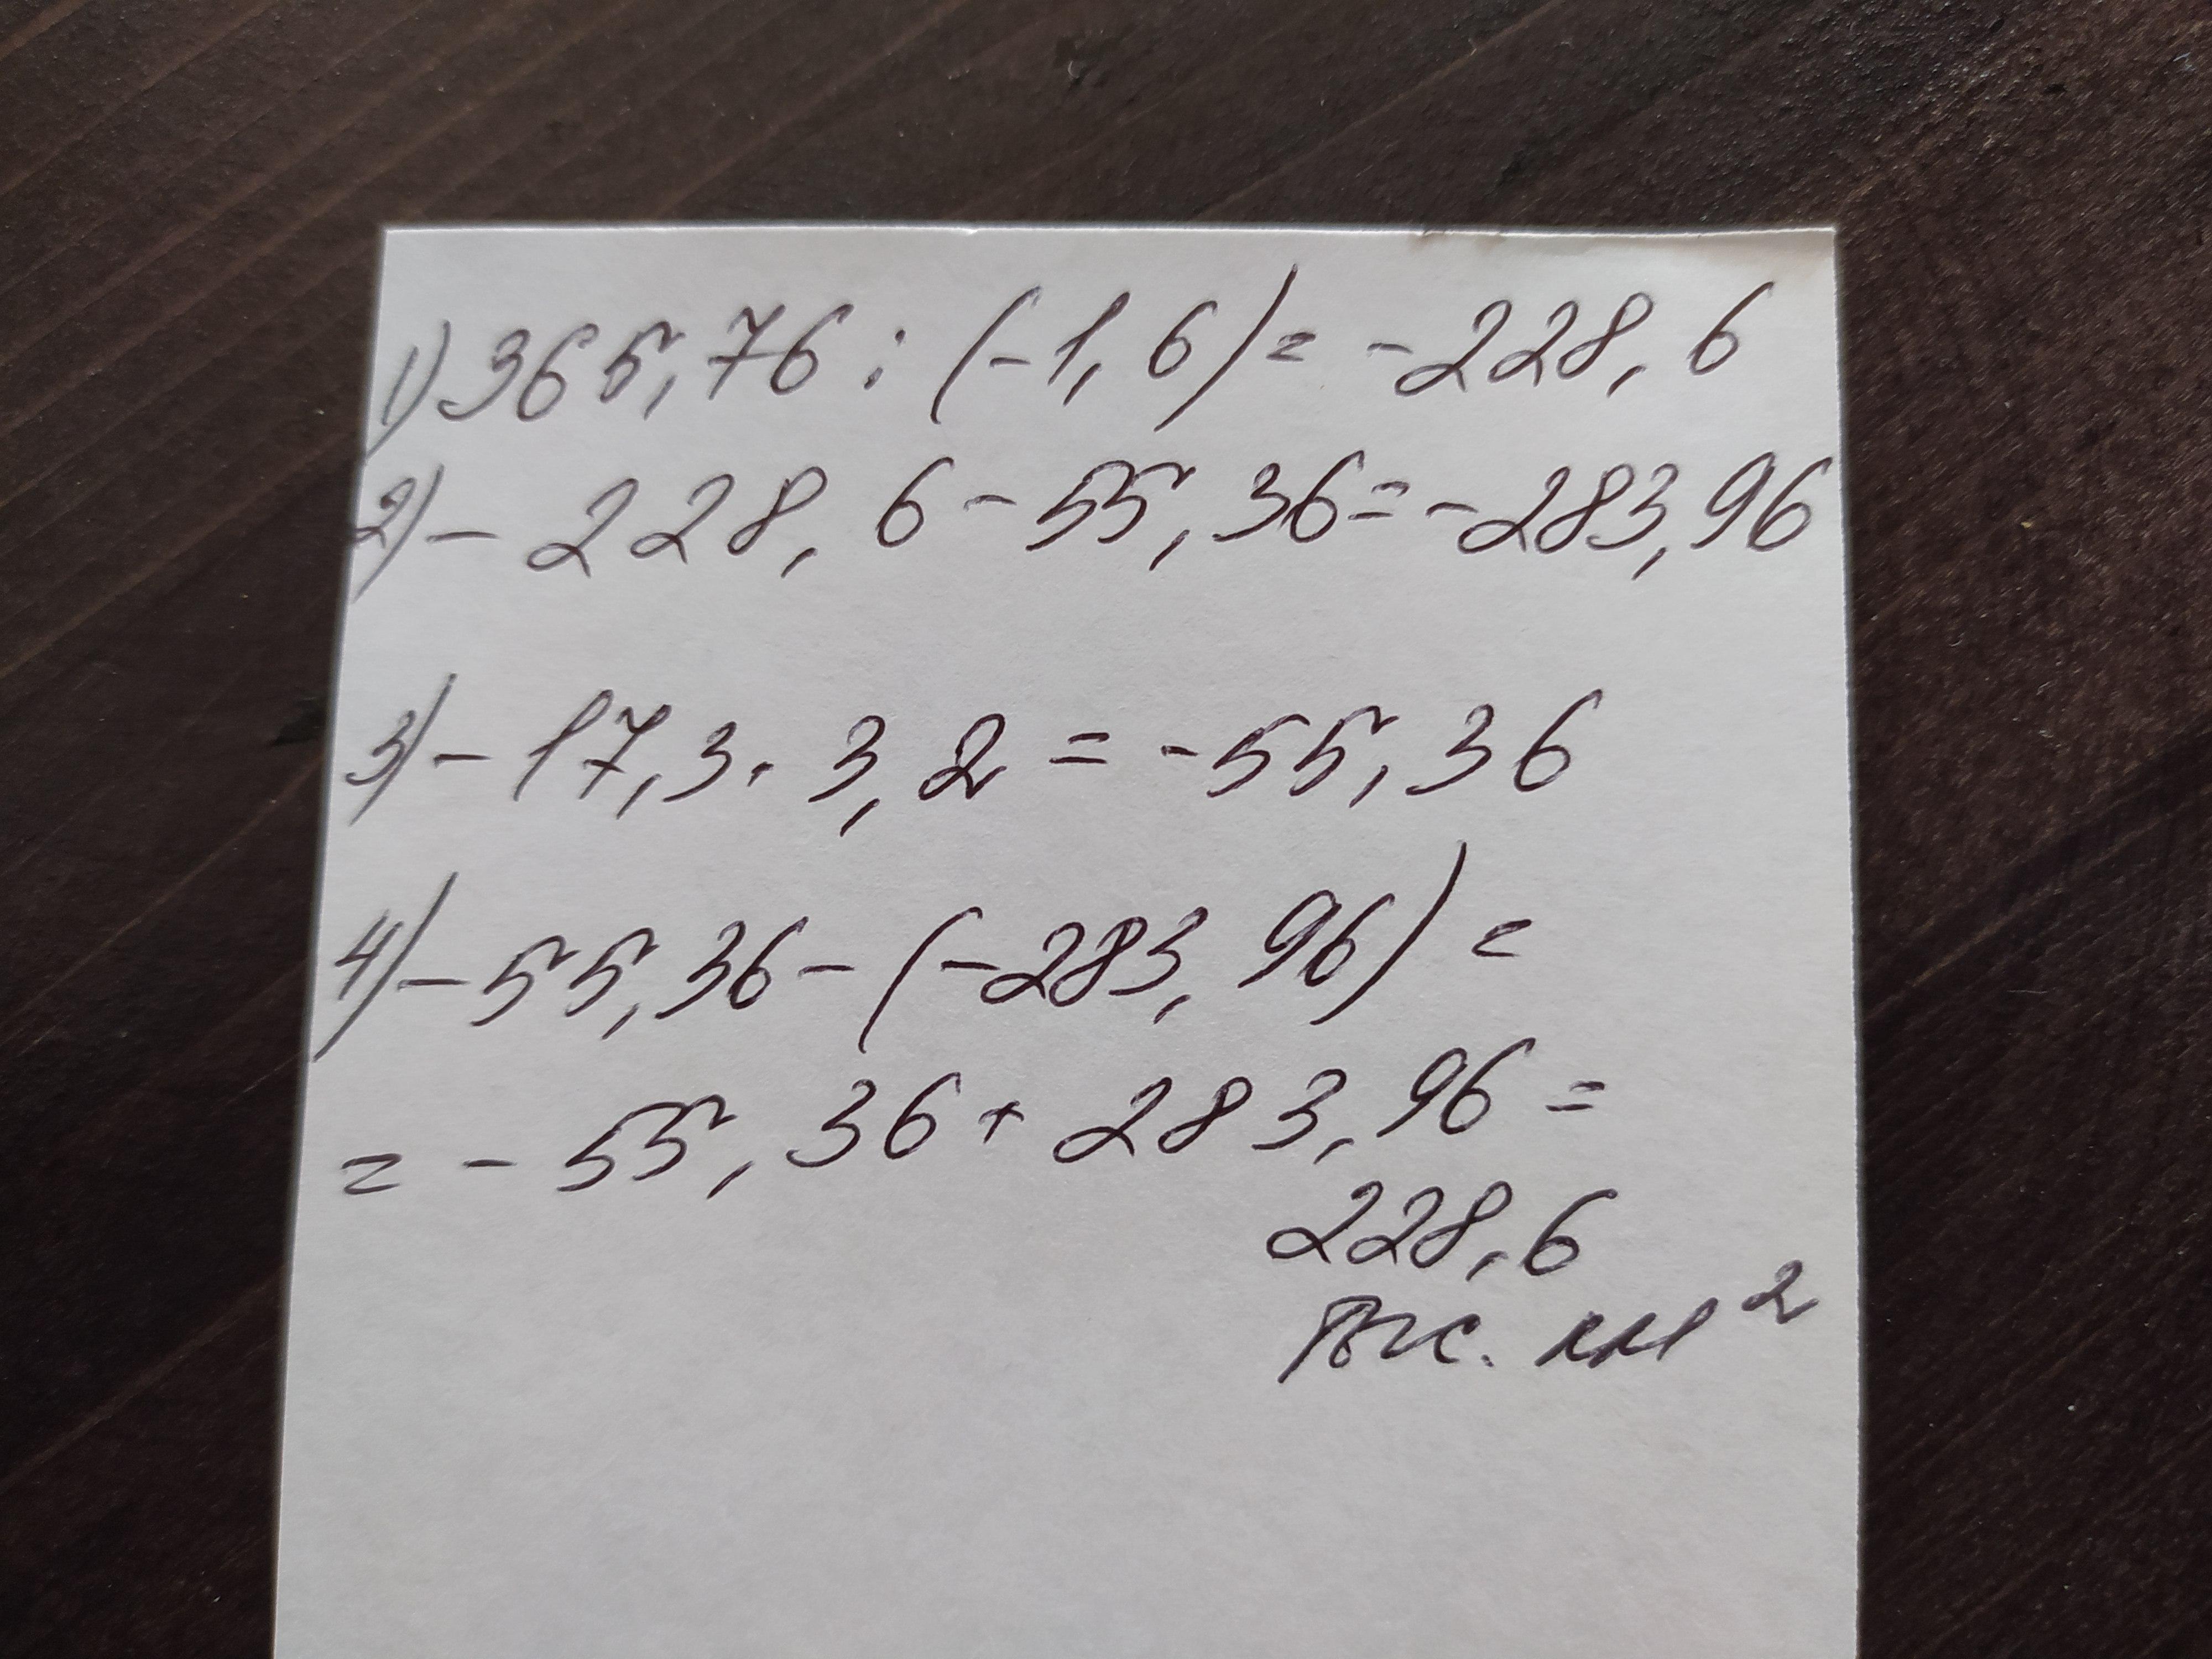 1) 365,76 : (-1,6) = -228,6
2) - 228,6 - 55,36 = -283,96
3) - 17,3 · 3,2 = -55,36
4) - 55,36 - (-283,96) =
= - 55,36 + 283,96 =
228,6
тыс. км²